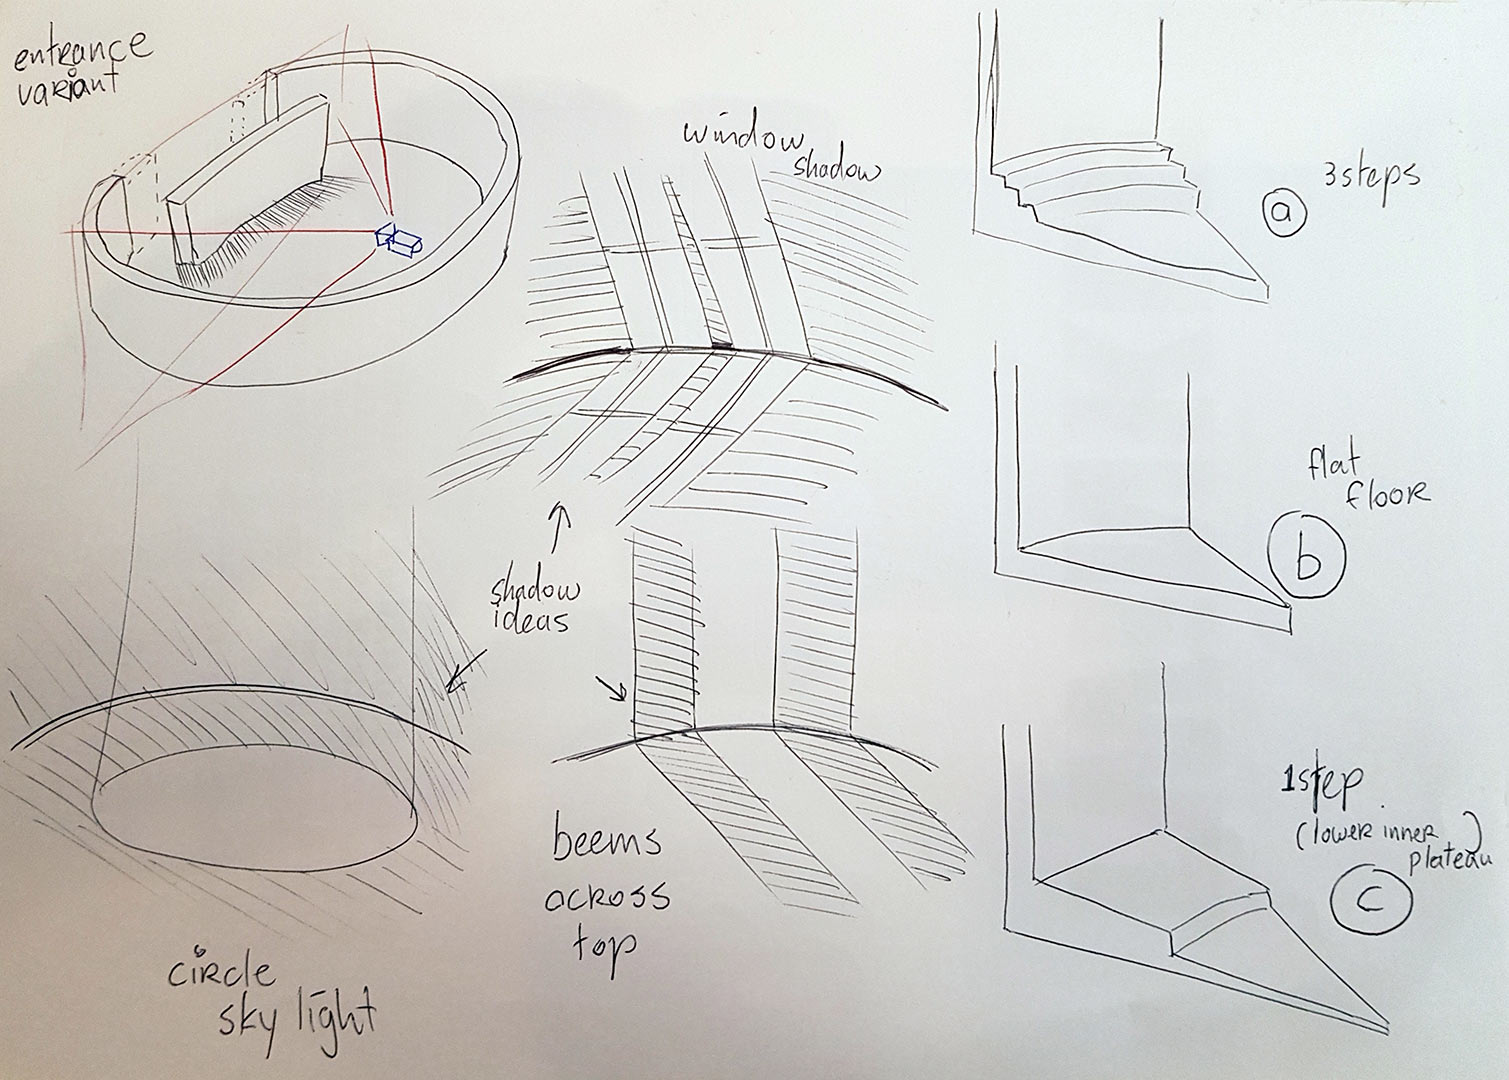 entrance
variant
window
shadow
3 steps
a
flat
floor
b
shadow
ideas
1 step
(lower inner
plateau)
c
beems
across
top
circle
sky light